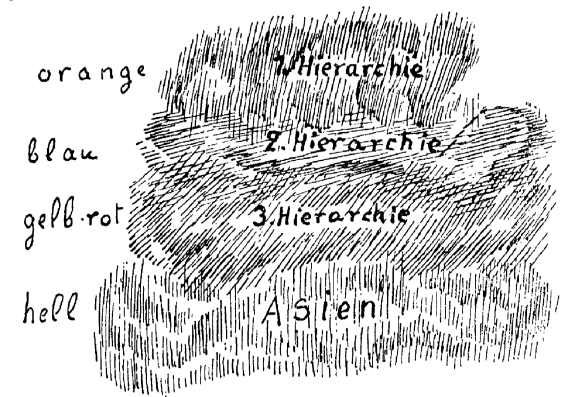 orange 1. Hierarchie
blau 2. Hierarchie
gelb-rot 3. Hierarchie
hell Asien